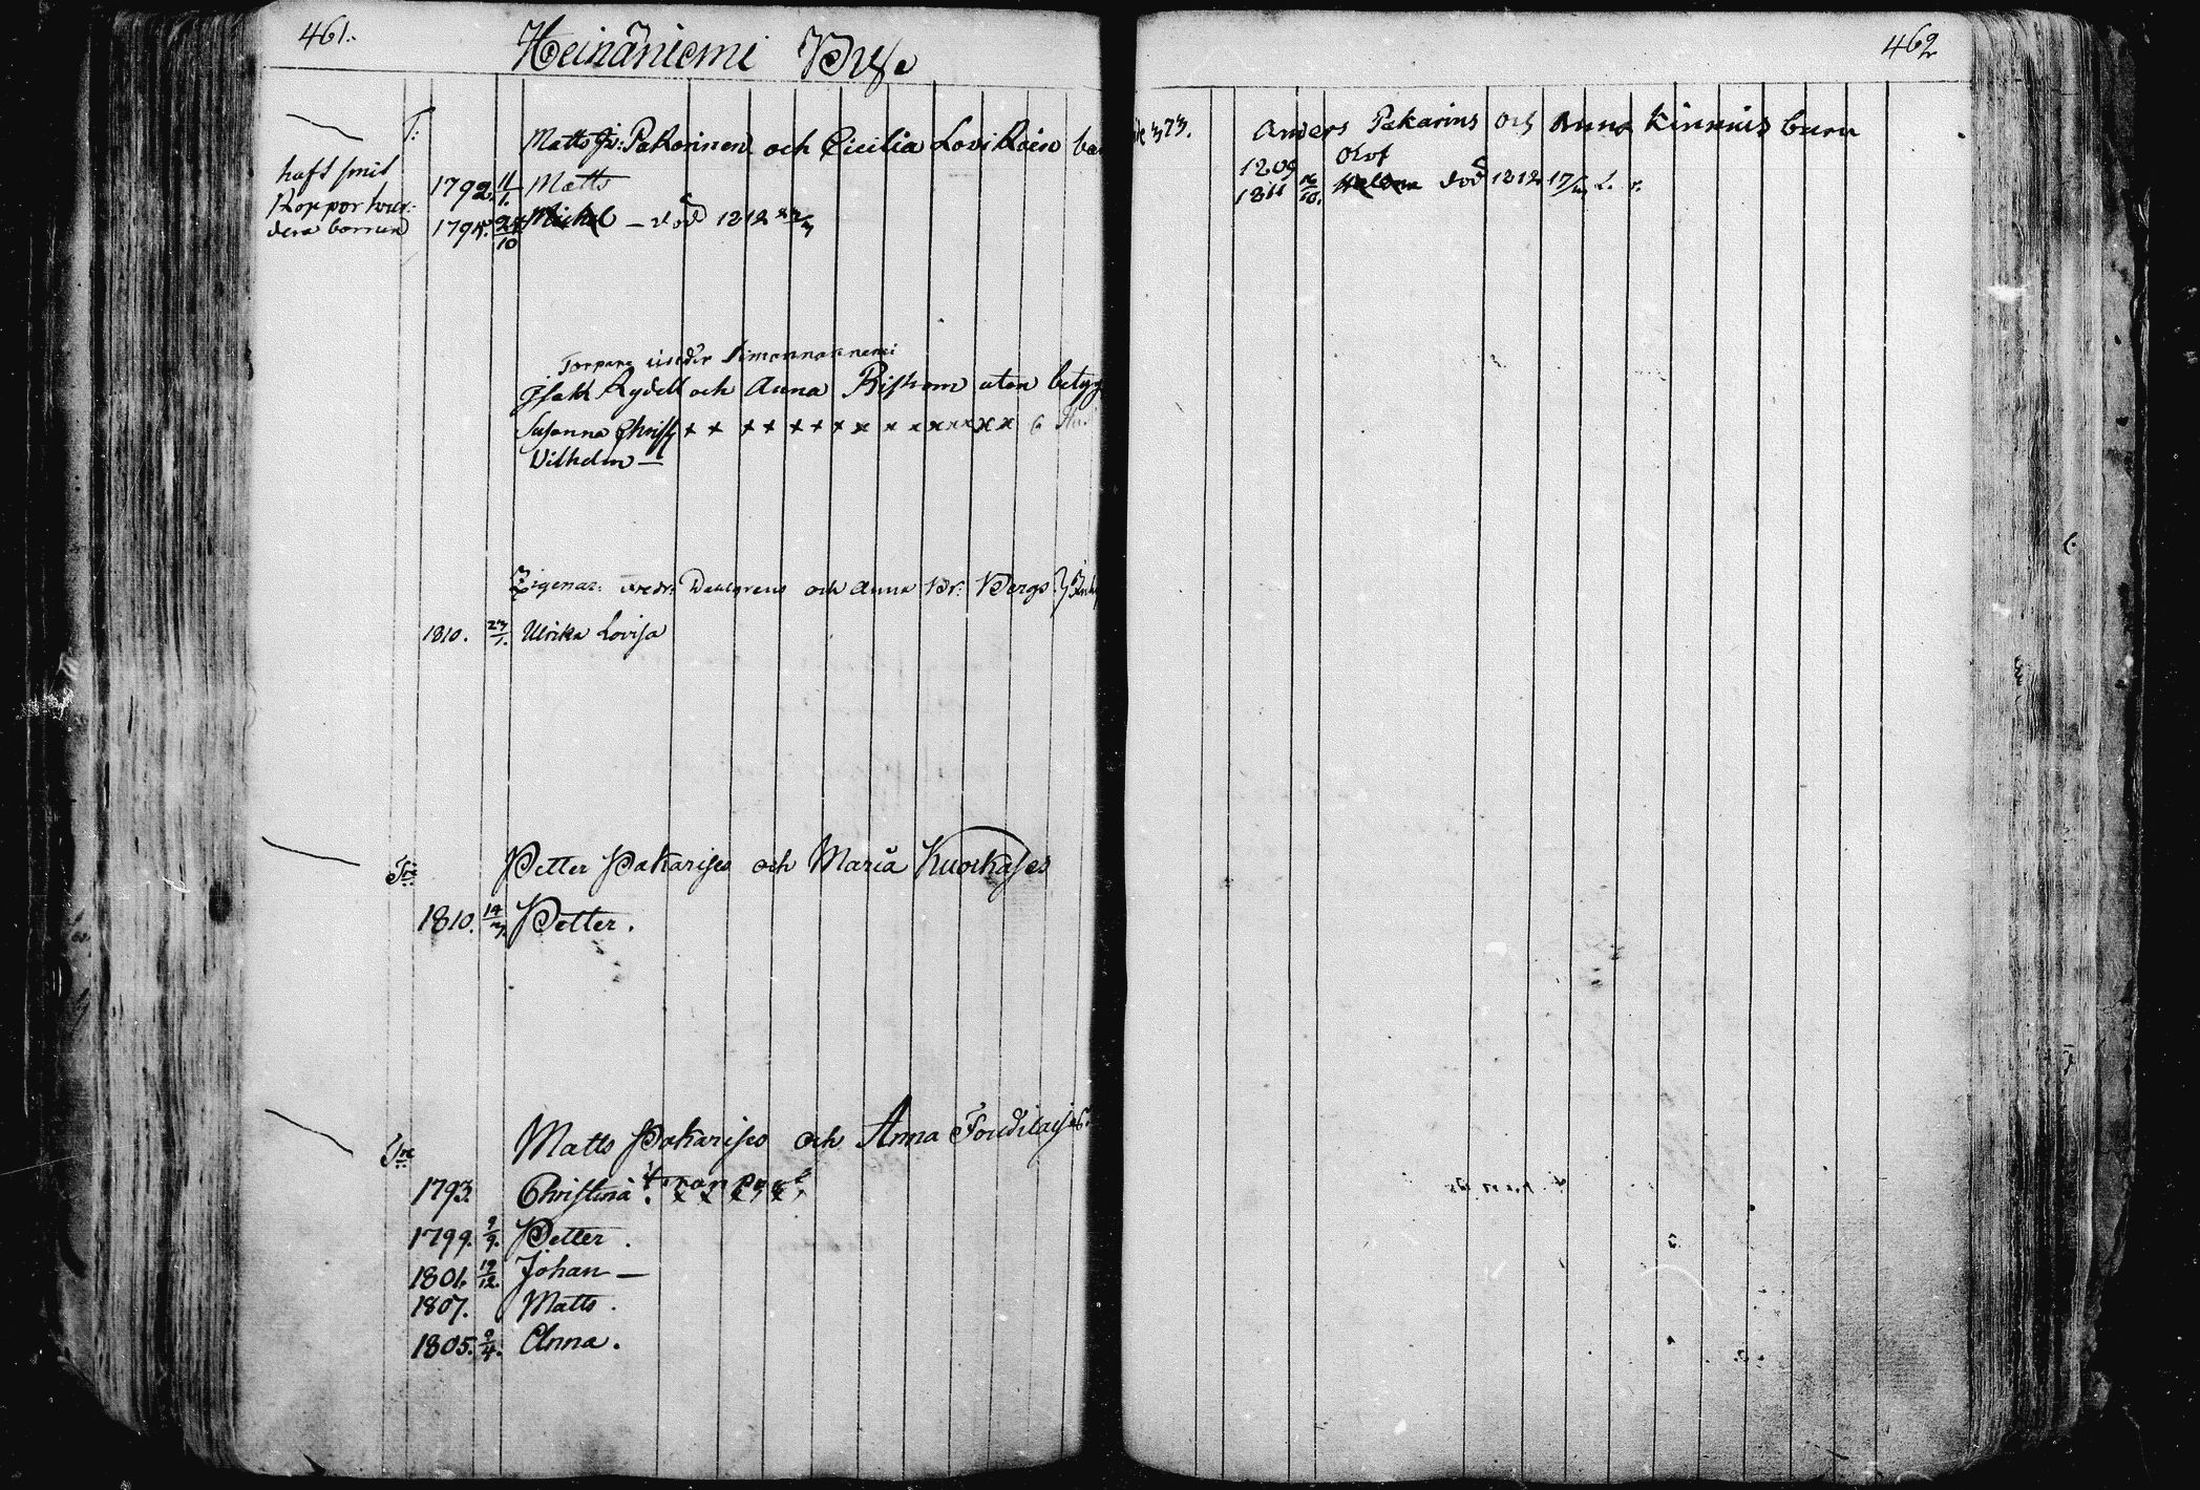 461.
Heinäniemi By
T:
Matts Js: Pakarinen och Cicilia Lovikain
haft smit
Koppor hvar:
dera barnen
1792. 11/1. Matts
1795. 24/10 Michel – död 1812
Torpare under Simonnanniemi
Isak Rydell och Anna Riskom utan betyg
Susanna Christ x x x x x x x x x x x x x x x
Vilhelm –
Eigenar: Fredr: Dahlgrens och Anna Br: Bergs
1810. 23/1. Ulrika Lovisa
Petter Pakarises och Maria Kuorkases
1810. 14/3. Petter.
Matts Pakarises och Anna
1793. Christina
1799. 9/9. Petter.
1801. 19/12. Johan –
1807. Matts.
1805. 9/4. Anna.
462
373.
Anders Pakarins och Anna Kinnuis barn
1809 Olof
1811 16/10. Helena död 1812 17/